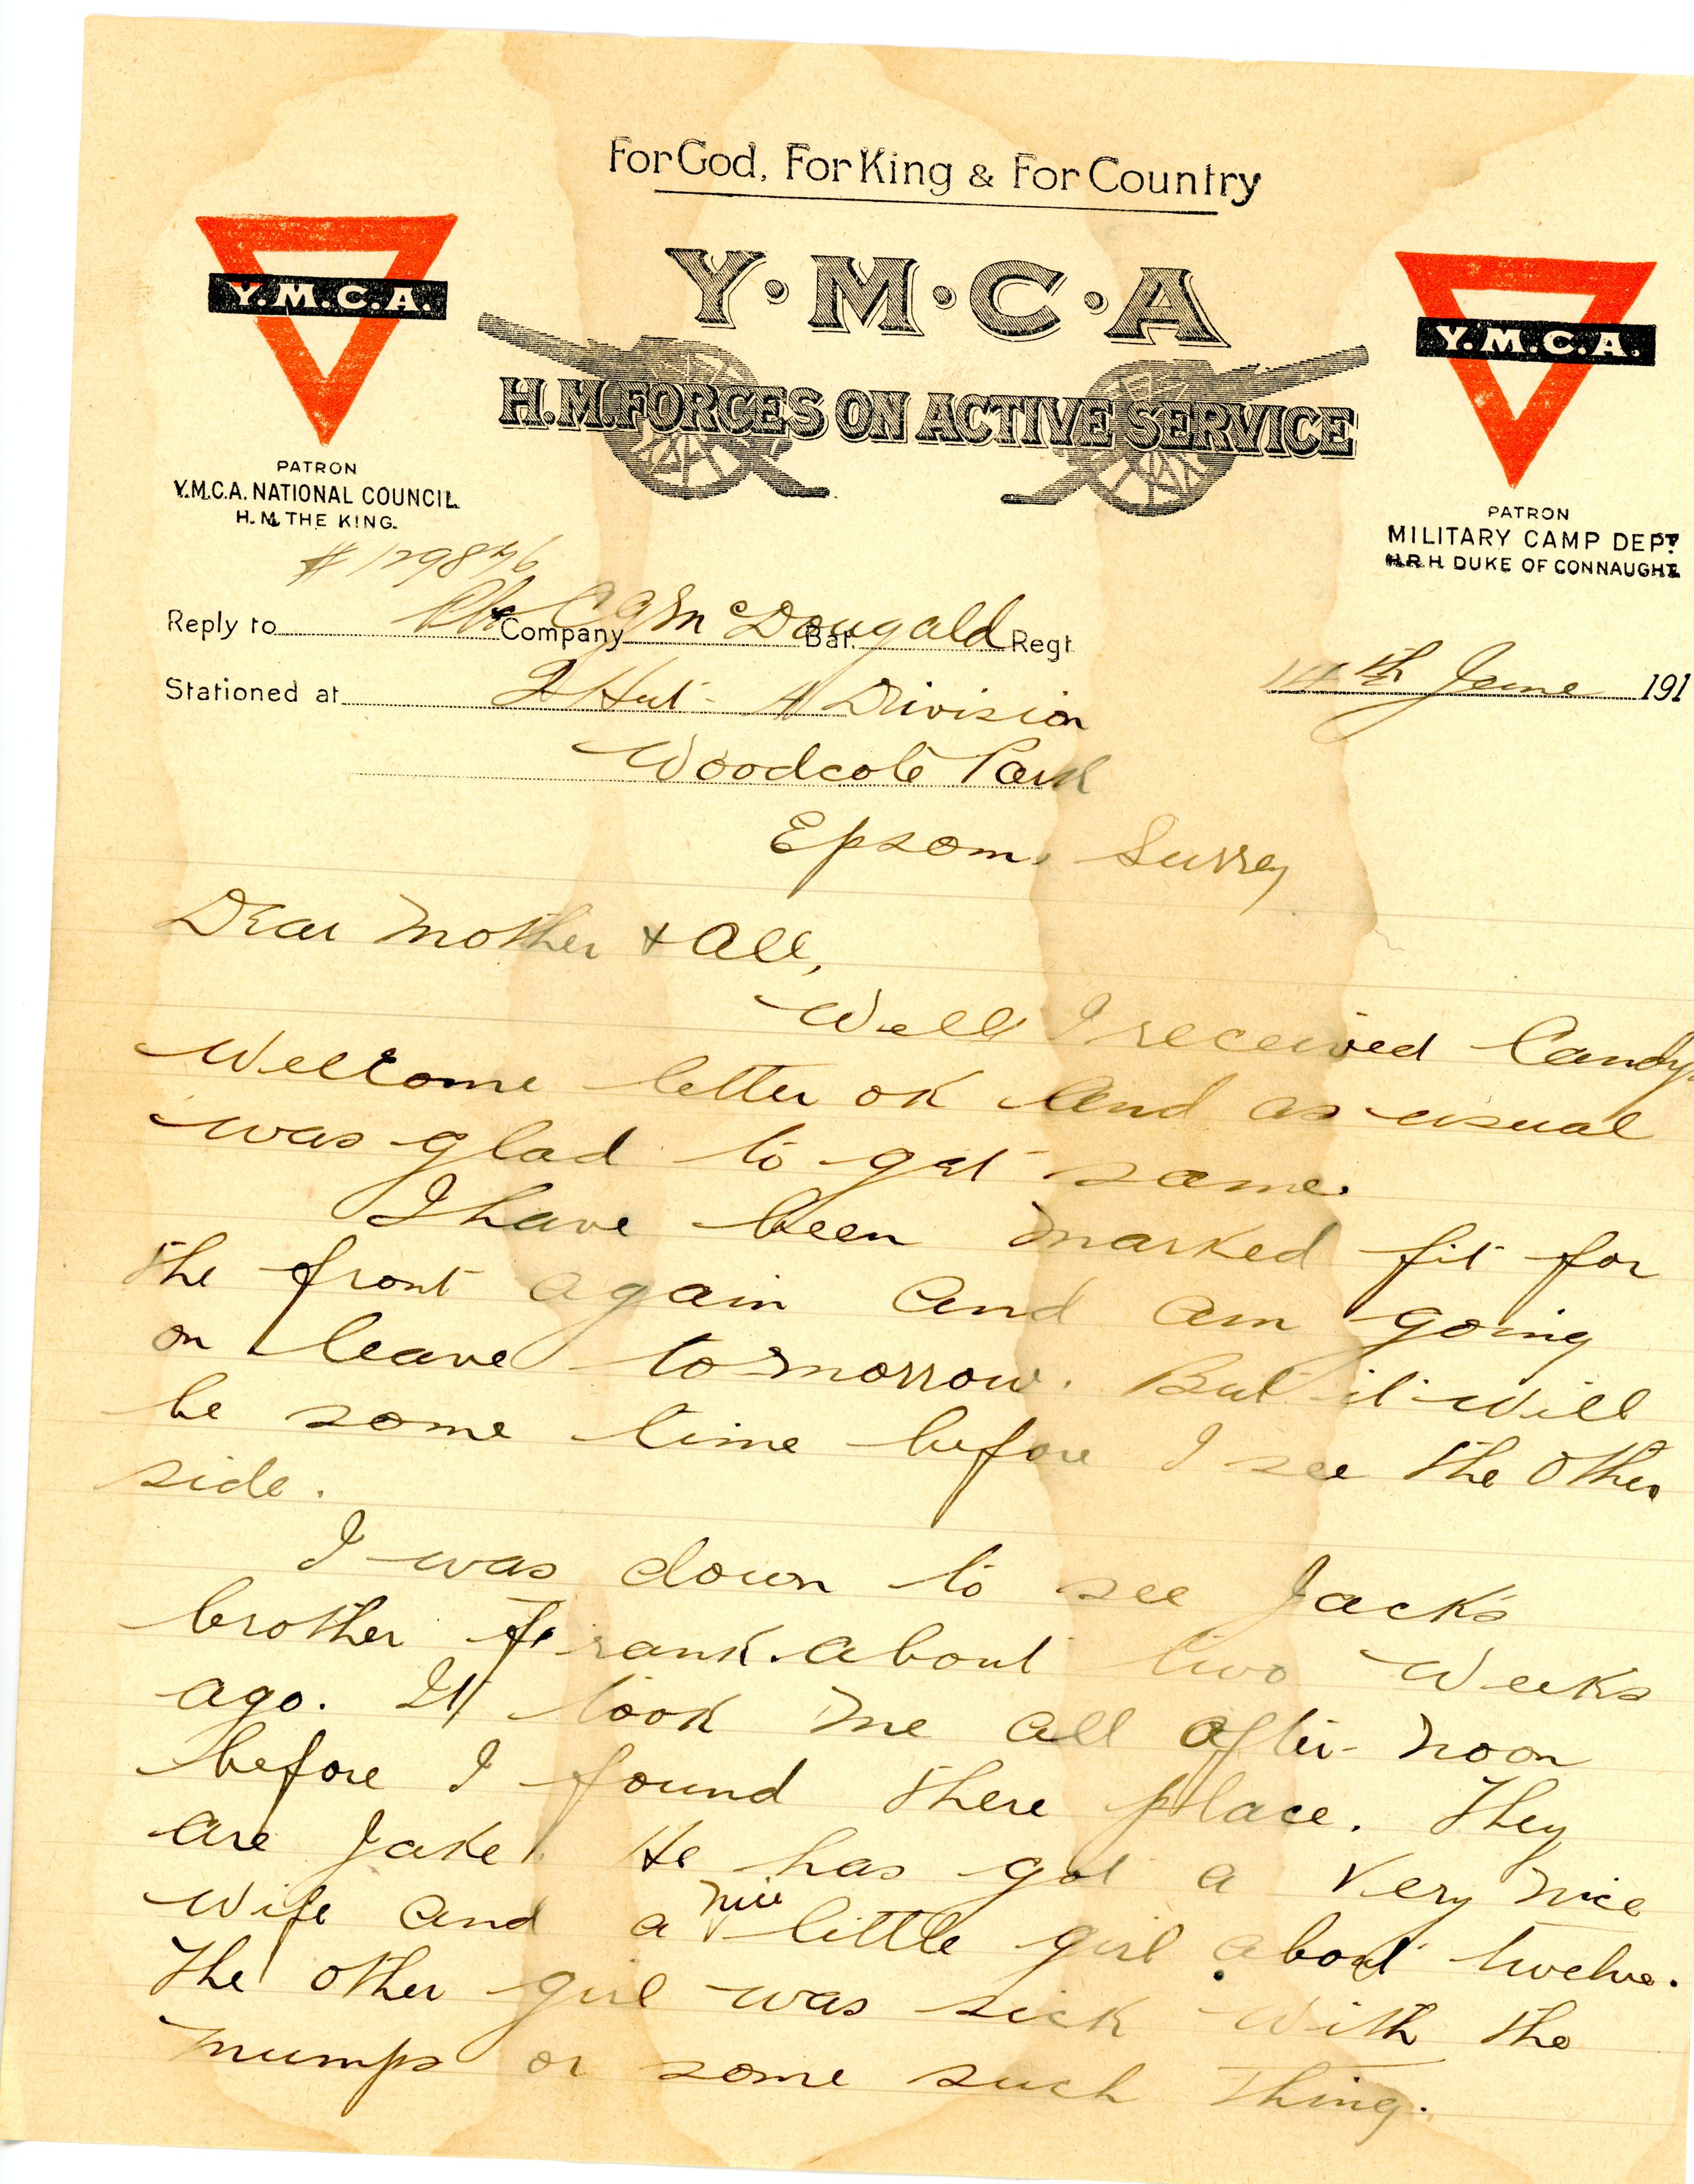 For God, For King & For Country
Y.M.C.A
H.M. FORCES ON ACTIVE SERVICE
Y.M.C.A.
PATRON
Y.M.C.A. NATIONAL COUNCIL
H.M. THE KING.
Y.M.C.A.
PATRON
MILITARY CAMP DEPT
H.R.H. DUKE OF CONNAUGHT
# 129876
Reply to Pte C G McDougald Company Bat. Regt
14th June 191
Stationed at 2 Hut - A Division
Woodcote Park
Epsom, Surrey
Dear Mother & All,
Well I received Candys
Wellcome letter ok and as usual
was glad to get same.
I have been marked fit for
the front again and am going
on leave to-morrow. But it will
be some time before I see the other
side.
I was down to see Jack's
brother Frank about two weeks
ago. It took me all after-noon
before I found there place. They
are Jake. He has got a very nice
wife and a nice little girl about twelve.
The other girl was sick with the
mumps or some such thing.